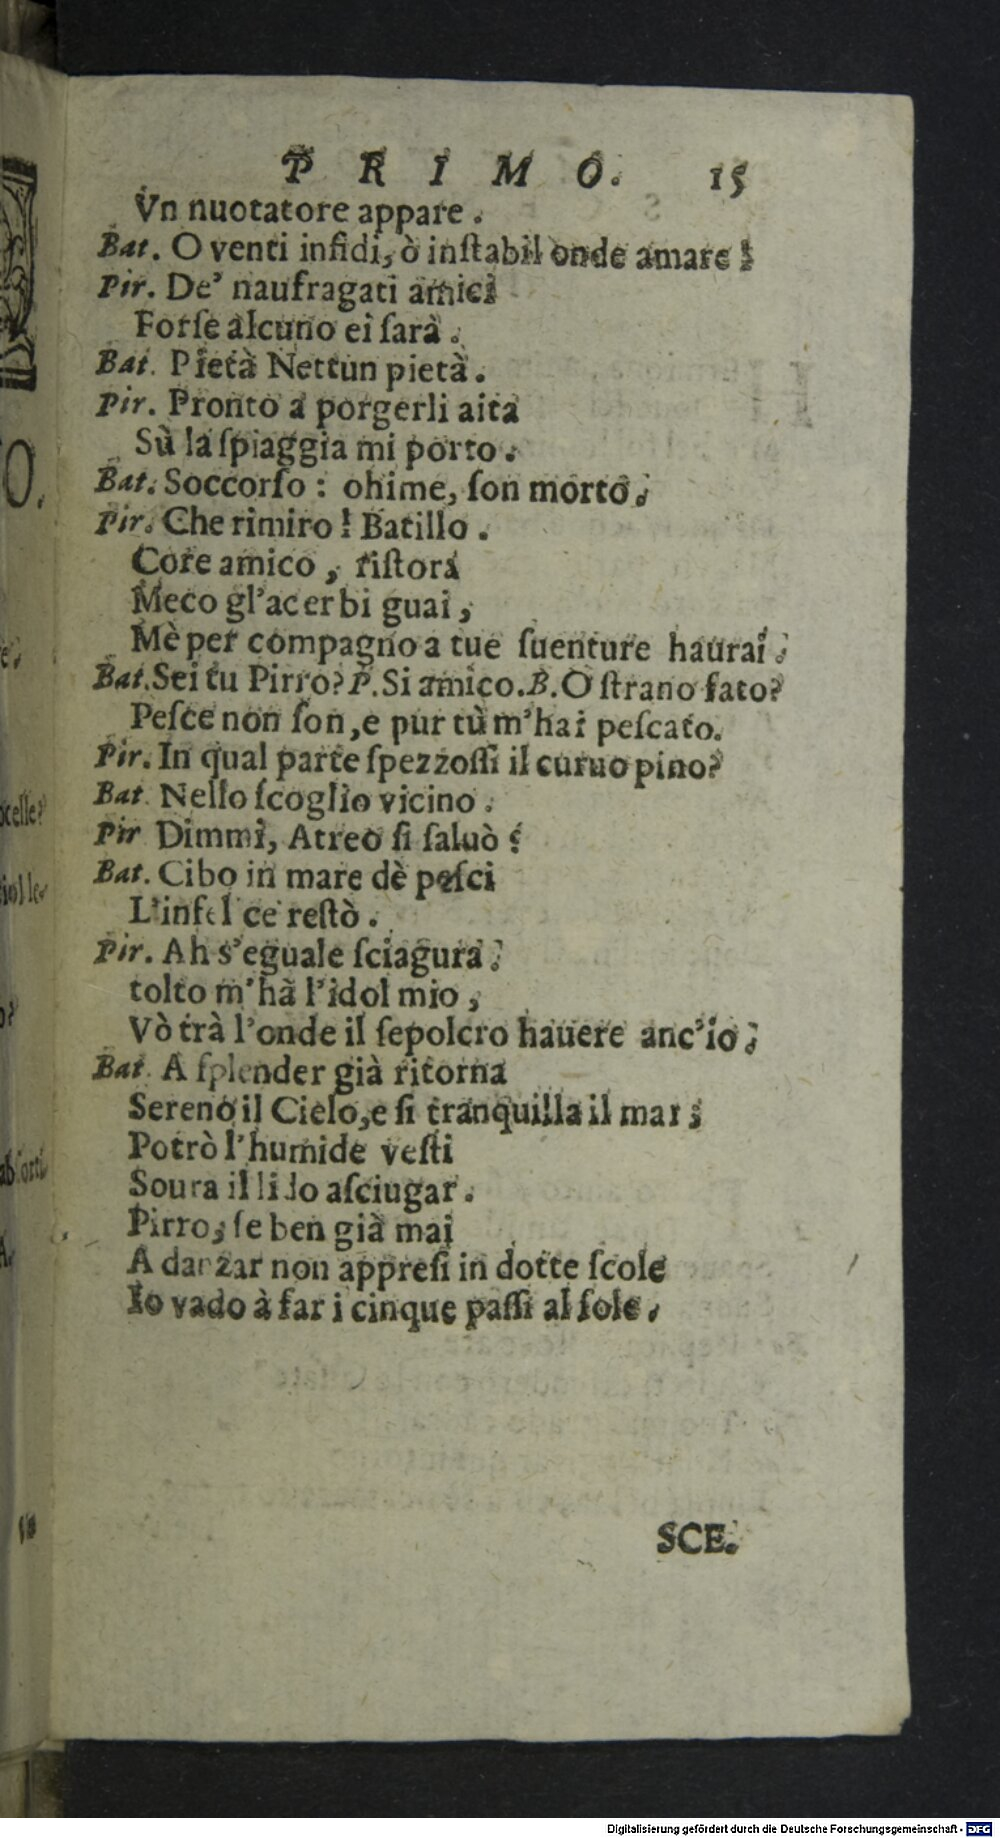 PRIMO. 15
Vn nuotatore appare.
Bat. O venti infidi, ò inſtabil onde amare!
Pir. De' naufragati amici
Forſe alcuno ei ſarà.
Bat. Pietà Nettun pietà.
Pir. Pronto a porgerli aita
Sù la ſpiaggia mi porto.
Bat. Soccorſo: ohime, ſon morto.
Pir. Che rimiro! Batillo.
Core amico, riſtora
Meco gl'acerbi guai,
Mè per compagno a tue ſuenture haurai.
Bat. Sei tu Pirro? P. Si amico. B. O ſtrano fato?
Peſce non ſon, e pur tù m'hai peſcato.
Pir. In qual parte ſpezzoſſi il curuo pino?
Bat. Nello ſcoglio vicino.
Pir Dimmi, Atreo ſi ſaluò?
Bat. Cibo in mare dè peſci
L'infel ce reſtò.
Pir. Ah s'eguale ſciagura.
tolto m'hà l'idol mio,
Vò trà l'onde il ſepolcro hauere anc'io.
Bat. A ſplender già ritorna
Sereno il Cielo, e ſi tranquilla il mar;
Potrò l'humide veſti
Soura il lido aſciugar.
Pirro, ſe ben già mai
A danzar non appreſi in dotte ſcole
Io vado à far i cinque paſſi al ſole.
SCE.
Digitalisierung gefördert durch die Deutsche Forschungsgemeinschaft - DFG